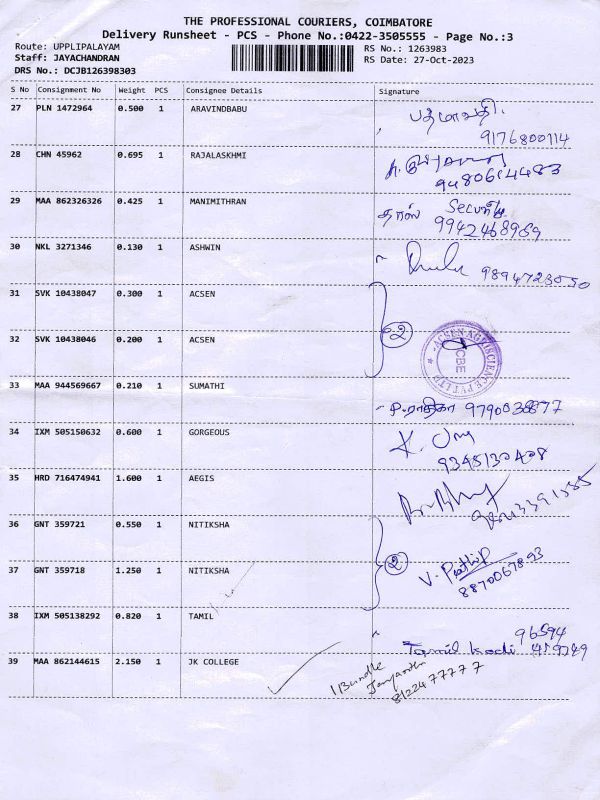 THE PROFESSIONAL COURIERS, COIMBATORE
Delivery Runsheet - PCS - Phone No.:0422-3505555 - Page No.:3
Route: UPPLIPALAYAM
RS No.: 1263983
Staff: JAYACHANDRAN
RS Date: 27-Oct-2023
DRS No.: DCJB126398303
S No Consignment No Weight PCS Consignee Details Signature
27 PLN 1472964 0.500 1 ARAVINDBABU பத்மாவதி
9176800114
28 CHN 45962 0.695 1 RAJALASKHMI
9480614483
29 MAA 862326326 0.425 1 MANIMITHRAN தாஸ் Security
9942468969
30 NKL 3271346 0.130 1 ASHWIN
31 SVK 10438047 0.300 1 ACSEN
2
32 SVK 10438046 0.200 1 ACSEN ACSEN AGROSCIENCE PVT LTD CBE
33 MAA 944569667 0.210 1 SUMATHI P.ராதிகா 9790038877
34 IXM 505150632 0.600 1 GORGEOUS
9345130408
35 HRD 716474941 1.600 1 AEGIS
36 GNT 359721 0.550 1 NITIKSHA
2 V. Prathip
37 GNT 359718 1.250 1 NITIKSHA 8870067893
38 IXM 505138292 0.820 1 TAMIL 96594
Tamil kodi
39 MAA 862144615 2.150 1 JK COLLEGE 1 Bundle
Jayanthi
8122477777